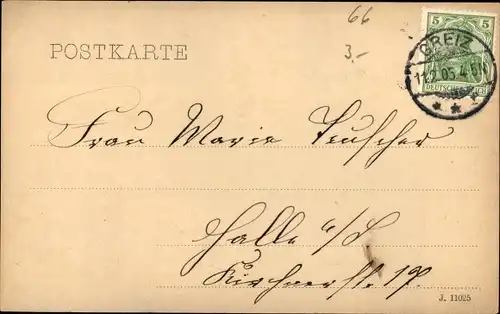 66
3.-
5 5
DEUTSCHES REICH
GREIZ
11.2.05.4-5N
* * *
POSTKARTE
Frau Marie Teuscher
Halle a/S.
Kirchnerstr. 19.
J. 11025